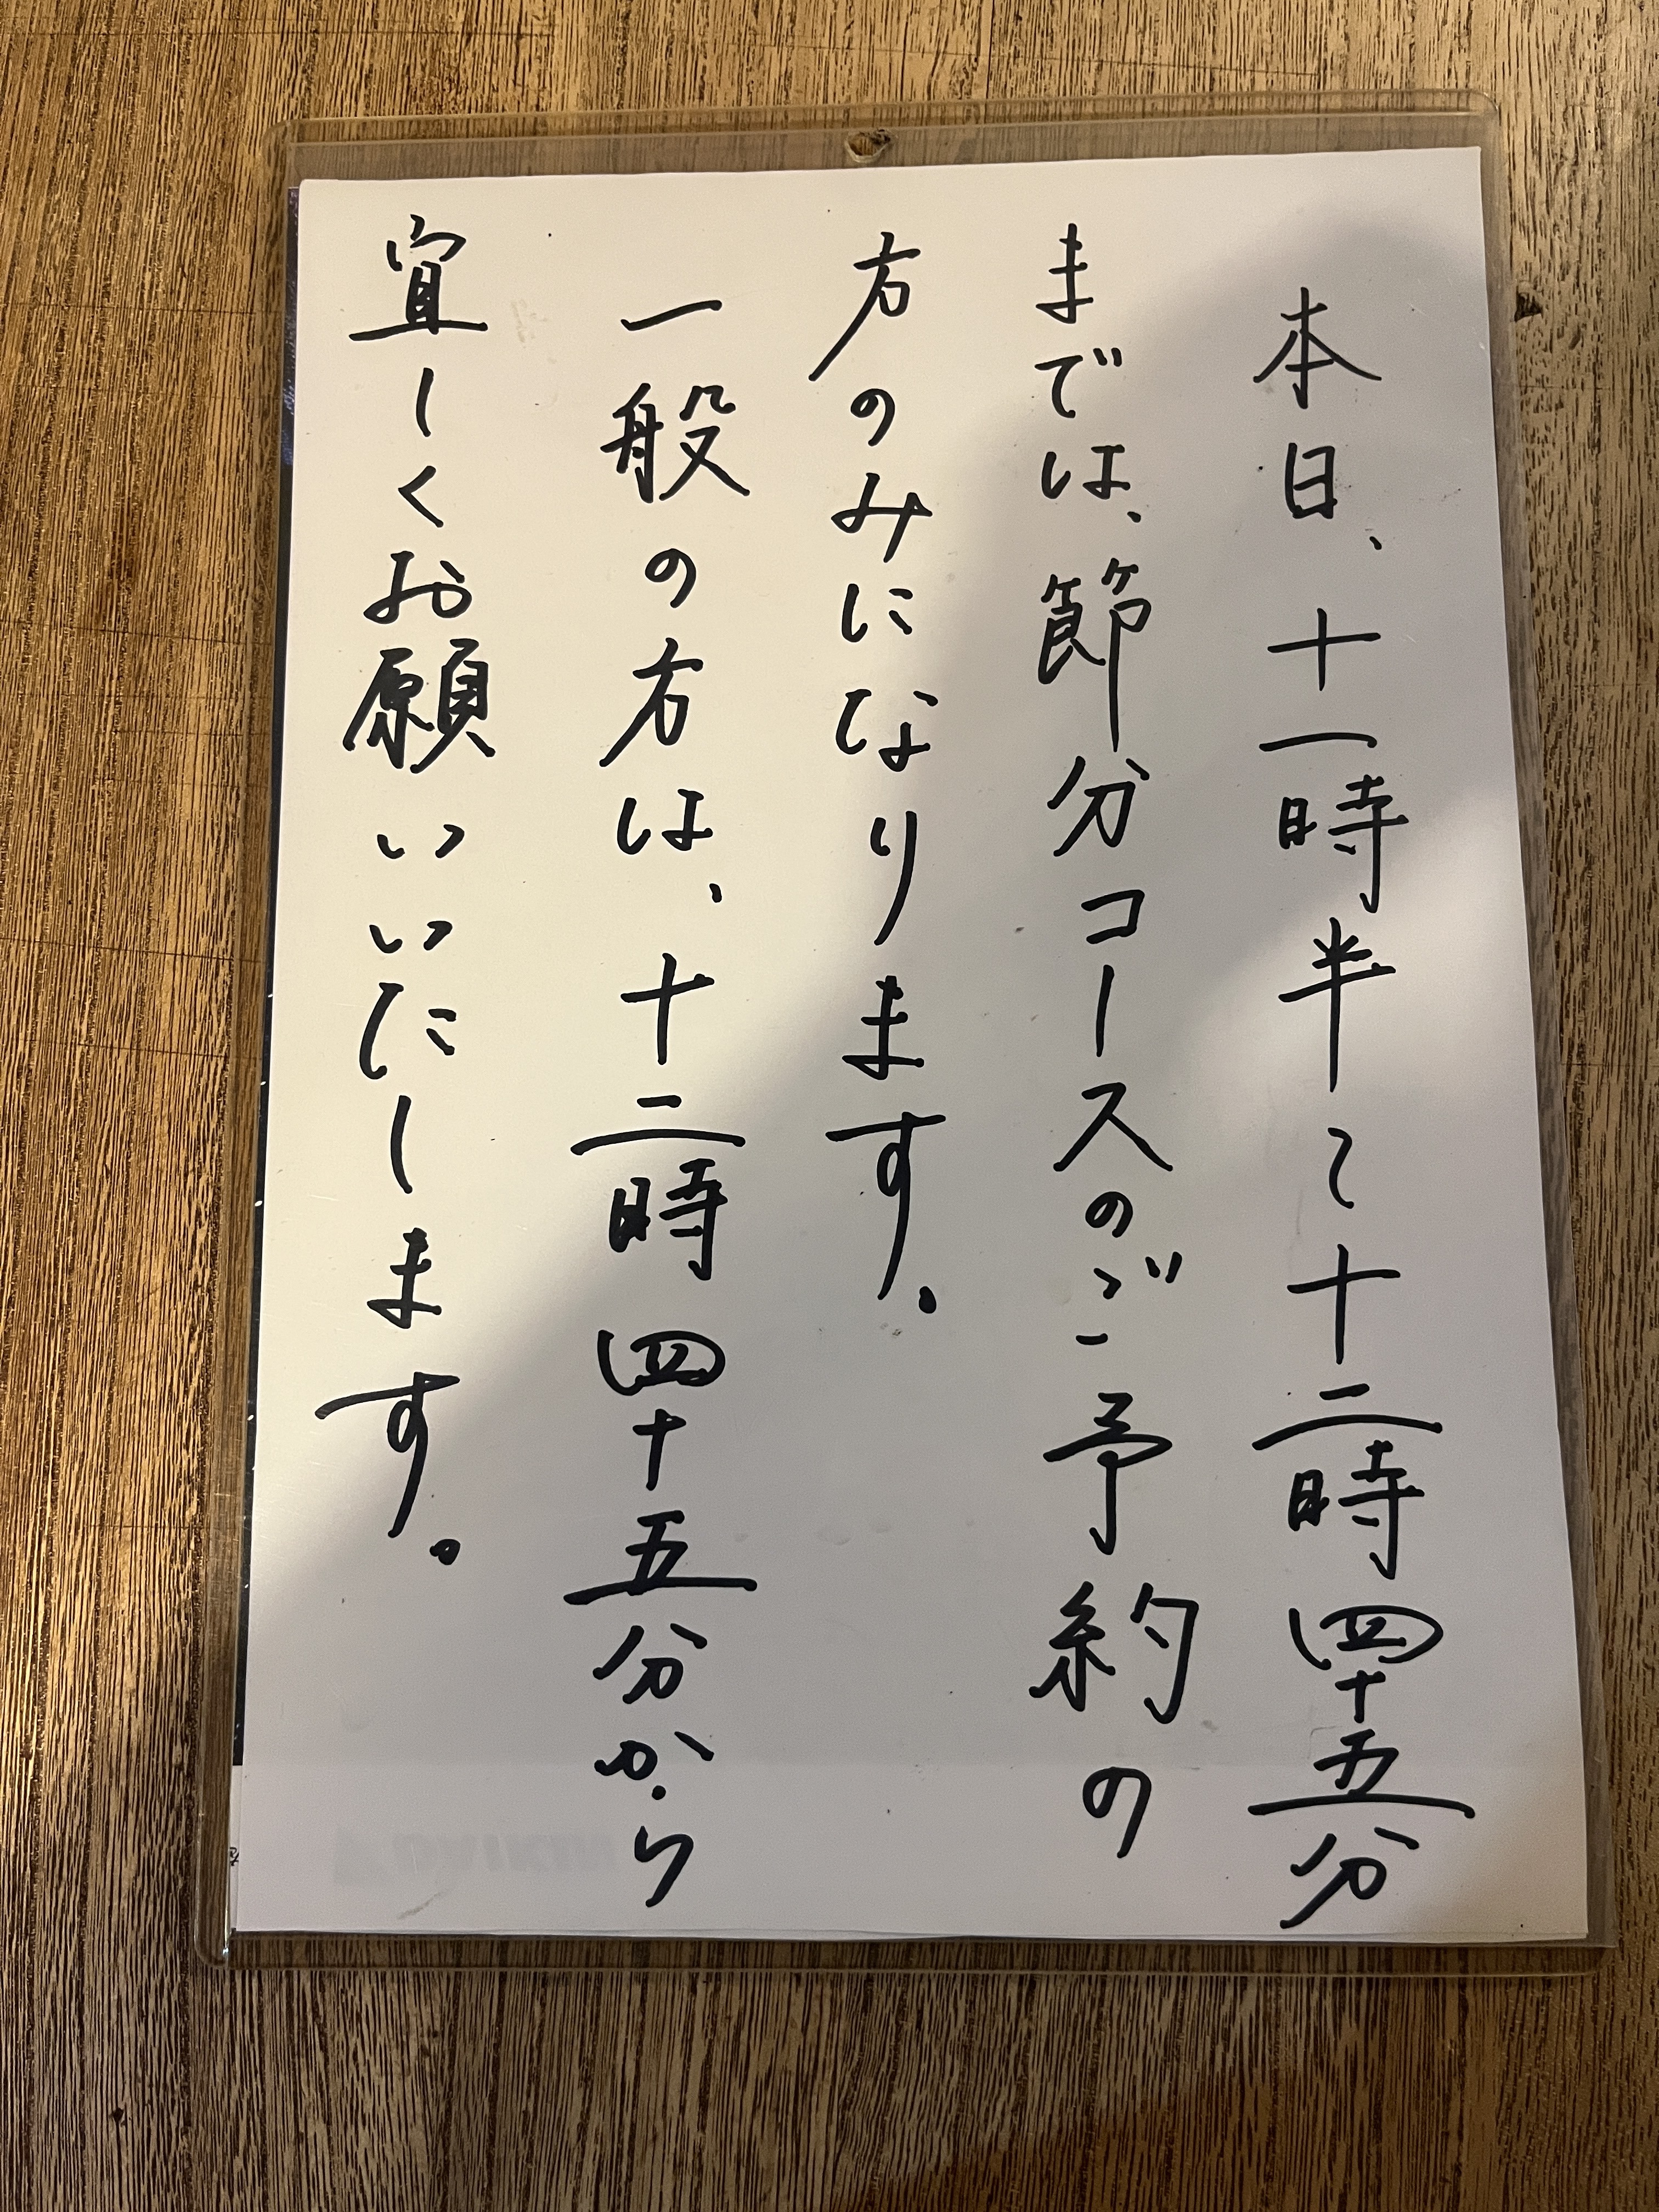 本日、十一時半〜十二時四十五分
までは、節分コースのご予約の
方のみになります。
一般の方は、十二時四十五分から
宜しくお願いいたします。